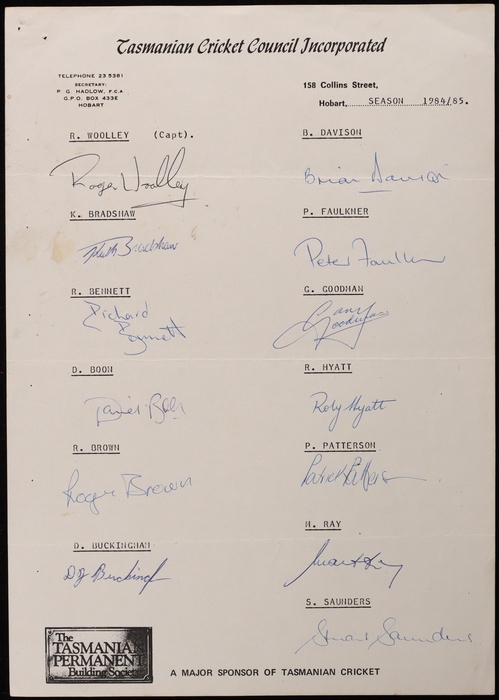 Tasmanian Cricket Council Incorporated
TELEPHONE 23 5381
SECRETARY:
P. G. HADLOW, F.C.A.
G.P.O. BOX 433E
HOBART
158 Collins Street,
Hobart, SEASON 1984/85.
R. WOOLLEY (Capt).
Roger Woolley
K. BRADSHAW
Keith Bradshaw
R. BENNETT
Richard
Bennett
D. BOON
David Boon
R. BROWN
Roger Brown
D. BUCKINGHAM
DJ Buckingh
B. DAVISON
Brian Davison
P. FAULKNER
Peter Faulkner
G. GOODMAN
Gary
Goodman
R. HYATT
Roly Hyatt
P. PATTERSON
Patrick Patterson
M. RAY
Mark Ray
S. SAUNDERS
Stuart Saunders
The
TASMANIAN
PERMANENT
Building Society
A MAJOR SPONSOR OF TASMANIAN CRICKET